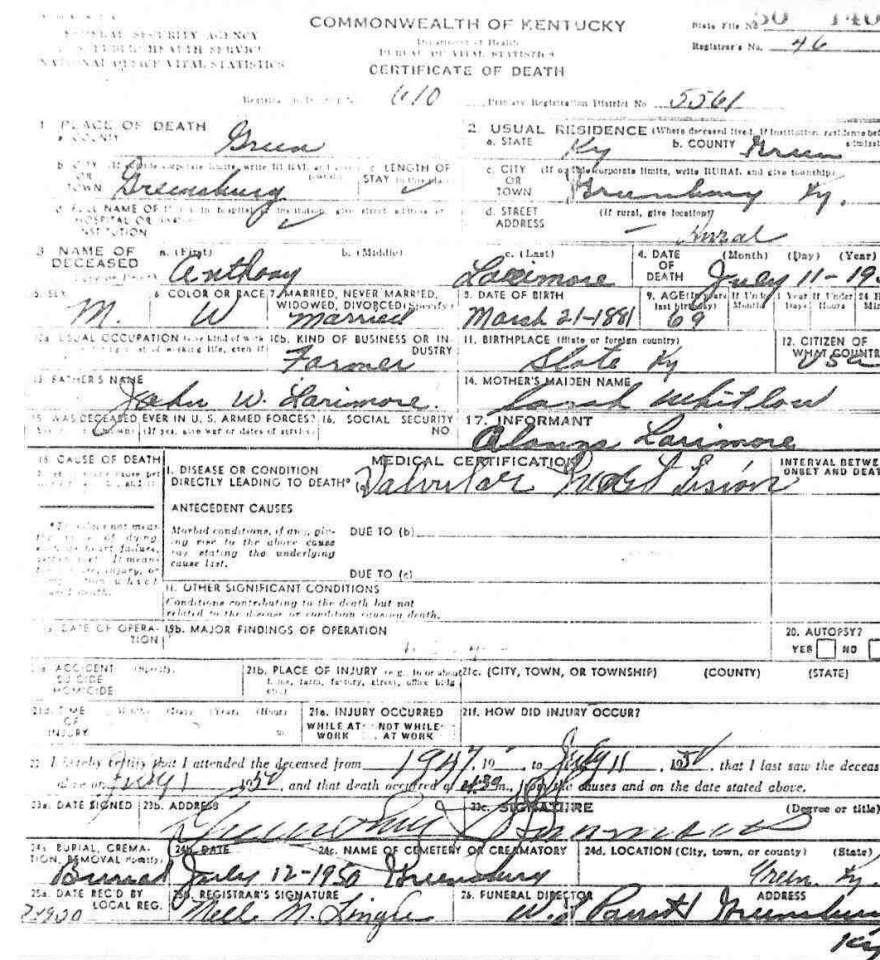 COMMONWEALTH OF KENTUCKY
State File No. 50 140
FEDERAL SECURITY AGENCY
U. S. PUBLIC HEALTH SERVICE
NATIONAL OFFICE VITAL STATISTICS
Department of Health
BUREAU OF VITAL STATISTICS
Registrar's No. 46
CERTIFICATE OF DEATH
610 Primary Registration District No. 5561
1 PLACE OF DEATH
a. COUNTY Green
2. USUAL RESIDENCE (Where deceased lived. If institution, residence
a. STATE Ky b. COUNTY Green
b. CITY OR TOWN Greensburg
c. LENGTH OF STAY
c. CITY OR TOWN (If outside corporate limits, write RURAL and give township) Greensburg Ky.
d. FULL NAME OF HOSPITAL OR INSTITUTION
d. STREET ADDRESS (If rural, give location) Rural
3 NAME OF DECEASED
a. (First) Anthony b. (Middle) c. (Last) Larimore
4. DATE OF DEATH (Month) (Day) (Year) July 11-19
5. SEX M.
6. COLOR OR RACE W
7. MARRIED, NEVER MARRIED, WIDOWED, DIVORCED (Specify) Married
8. DATE OF BIRTH March 21-1881
9. AGE (In years last birthday) 69 If Under 1 Year Months Days If Under 24 H Hours Min
10a. USUAL OCCUPATION (Give kind of work
10b. KIND OF BUSINESS OR INDUSTRY Farmer
11. BIRTHPLACE (State or foreign country) Ky
12. CITIZEN OF WHAT COUNTR USA
13 FATHER'S NAME John W. Larimore.
14. MOTHER'S MAIDEN NAME Sarah Whitlow
15. WAS DECEASED EVER IN U. S. ARMED FORCES? (If yes, give war or dates of service)
16. SOCIAL SECURITY NO.
17. INFORMANT Alonza Larimore
18 CAUSE OF DEATH
MEDICAL CERTIFICATION
INTERVAL BETWE
ONSET AND DEAT
I. DISEASE OR CONDITION
DIRECTLY LEADING TO DEATH* (a) Valvular
ANTECEDENT CAUSES
*This does not mean the mode of dying
Morbid conditions, if any, giving rise to the above cause (a) stating the underlying cause last.
DUE TO (b)
DUE TO (c)
II. OTHER SIGNIFICANT CONDITIONS
Conditions contributing to the death but not
related to the disease or condition causing death.
19a. DATE OF OPERATION
19b. MAJOR FINDINGS OF OPERATION
20. AUTOPSY?
YES NO
21a. ACCIDENT (Specify)
SUICIDE
HOMICIDE
21b. PLACE OF INJURY (e.g., in or about home, farm, factory, street, office bldg., etc.)
21c. (CITY, TOWN, OR TOWNSHIP) (COUNTY) (STATE)
21d. TIME OF INJURY (Month) (Day) (Year) (Hour) m.
21e. INJURY OCCURRED
WHILE AT WORK NOT WHILE AT WORK
21f. HOW DID INJURY OCCUR?
22 I hereby certify that I attended the deceased from 1947, 19 to July 11, 1950, that I last saw the deceas
alive on July 1 1950, and that death occurred at 4:30 m., from the causes and on the date stated above.
23a. DATE SIGNED 23b. ADDRESS Greensburg 23c. SIGNATURE (Degree or title)
24a. BURIAL, CREMATION, REMOVAL (Specify) Burial
24b. DATE July 12-1950
24c. NAME OF CEMETERY OR CREMATORY Greensburg
24d. LOCATION (City, town, or county) (State) Green. Ky.
25a. DATE REC'D BY LOCAL REG.
25b. REGISTRAR'S SIGNATURE Nelle N. Lingle
26. FUNERAL DIRECTOR W. Parrott ADDRESS Greensburg
Ky